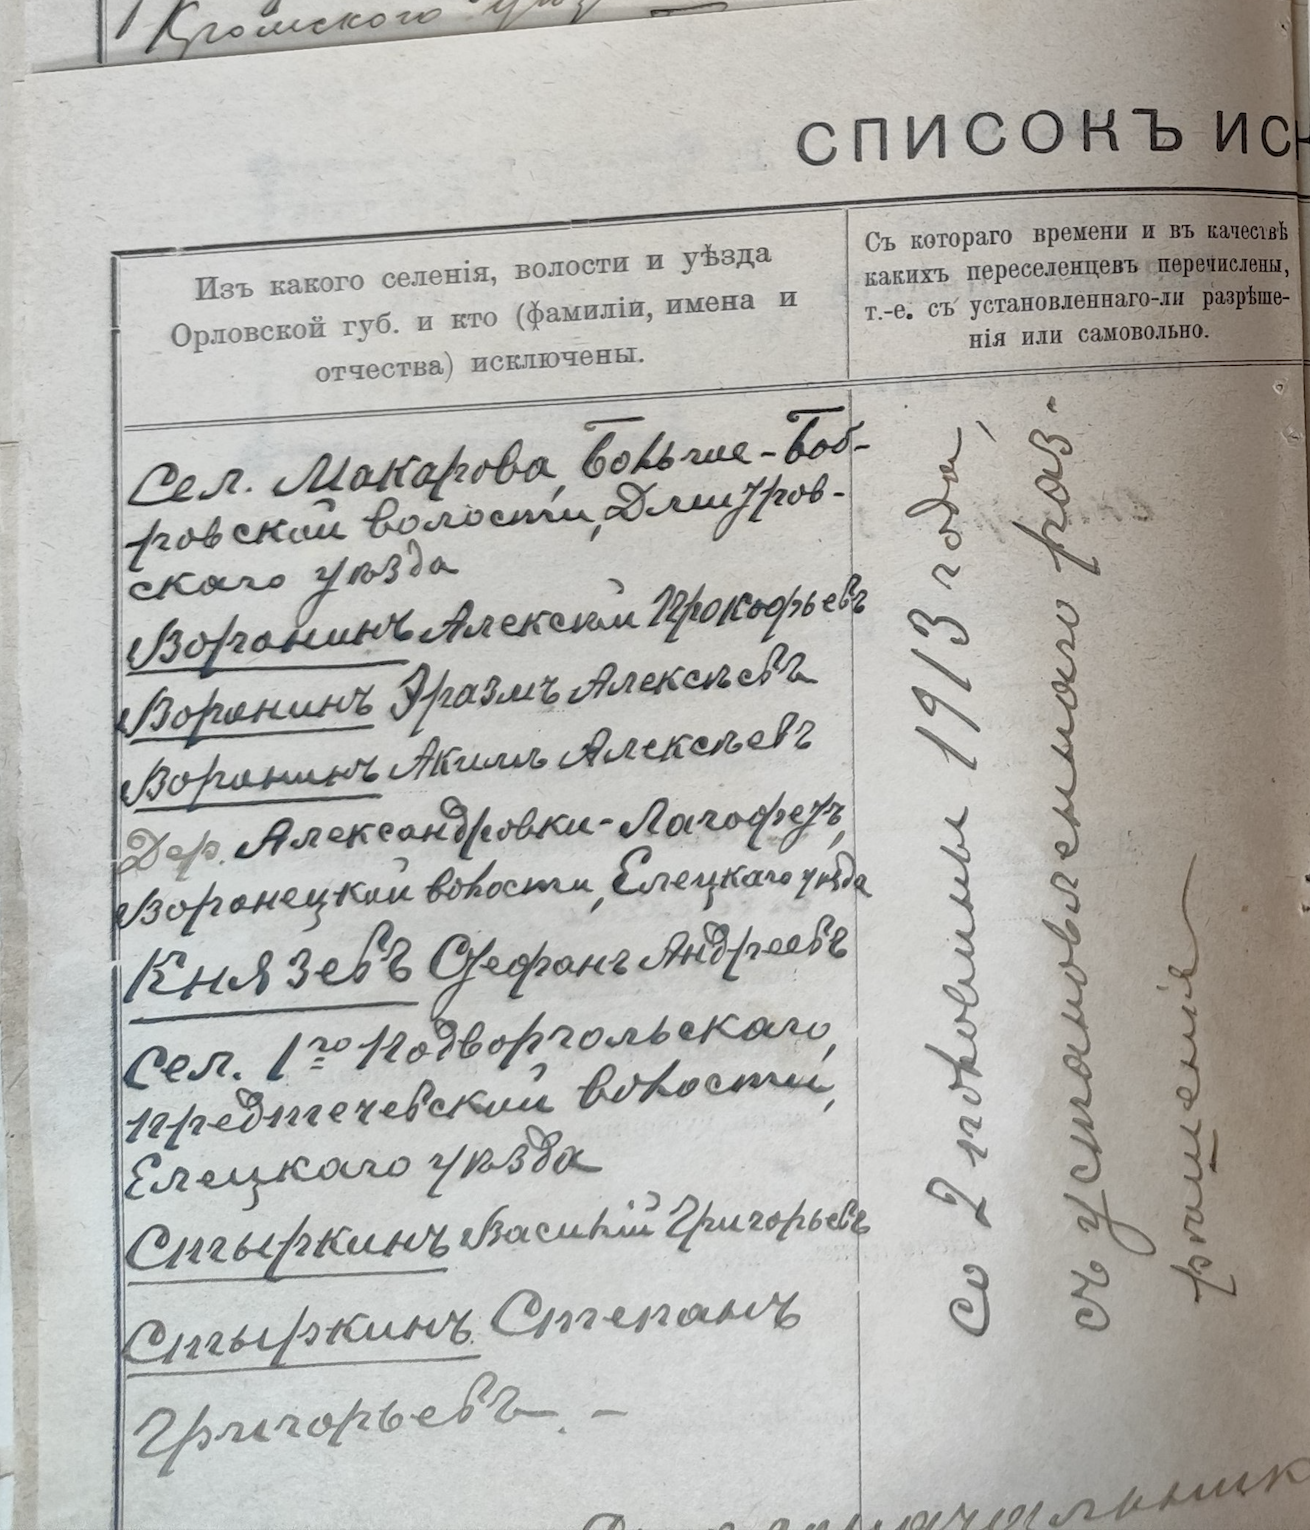 Кромского
СПИСОКЪ ИСК
Изъ какого селенія, волости и уѣзда
Орловской губ. и кто (фамиліи, имена и
отчества) исключены.
Съ котораго времени и въ качествѣ
какихъ переселенцевъ перечислены,
т.-е. съ установленнаго-ли разрѣше-
нія или самовольно.
Сел. Макарова, Больше-Боб-
ровской волости, Дмитров-
скаго уѣзда
Воронинъ Алексѣй Прокофьевъ
Воронинъ Эразмъ Алексѣевъ
Воронинъ Акиллъ Алексѣевъ
Дер. Александровки-Лагофетъ,
Воронецкой волости, Елецкаго уѣзда
Князевъ Стефанъ Андреевъ
Сел. 1го Подворгольскаго,
Предтечевской волости,
Елецкаго уѣзда
Стыркинъ Василій Григорьевъ
Стыркинъ Степанъ
Григорьевъ. -
Со 2 половины 1913 года,
съ установленнаго раз-
рѣшенія